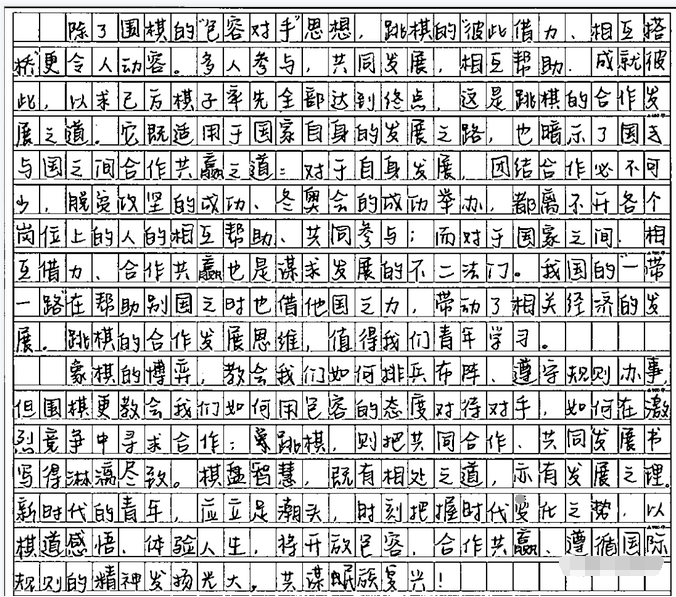 除了围棋的“包容对手”思想，跳棋的“彼此借力、相互搭
桥”更令人动容。多人参与，共同发展，相互帮助，成就彼
此，以求己方棋子率先全部达到终点，这是跳棋的合作发
展之道。它既适用于国家自身的发展之路，也暗示了国家
与国之间合作共赢之道：对于自身发展，团结合作必不可
少，脱贫攻坚的成功、冬奥会的成功举办，都离不开各个
岗位上的人的相互帮助、共同参与；而对于国家之间，相
互借力、合作共赢也是谋求发展的不二法门。我国的“一带
一路”在帮助别国之时也借他国之力，带动了相关经济的发
展。跳棋的合作发展思维，值得我们青年学习。
象棋的博弈，教会我们如何排兵布阵、遵守规则办事
但围棋更教会我们如何用包容的态度对待对手，如何在激
烈竞争中寻求合作；象跳棋，则把共同合作、共同发展书
写得淋漓尽致。棋盘智慧，既有相处之道，亦有发展之理。
新时代的青年，应立足潮头，时刻把握时代变化之势，以
棋道感悟、体验人生，将开放包容，合作共赢、遵循国际
规则的精神发扬光大。共谋民族复兴！